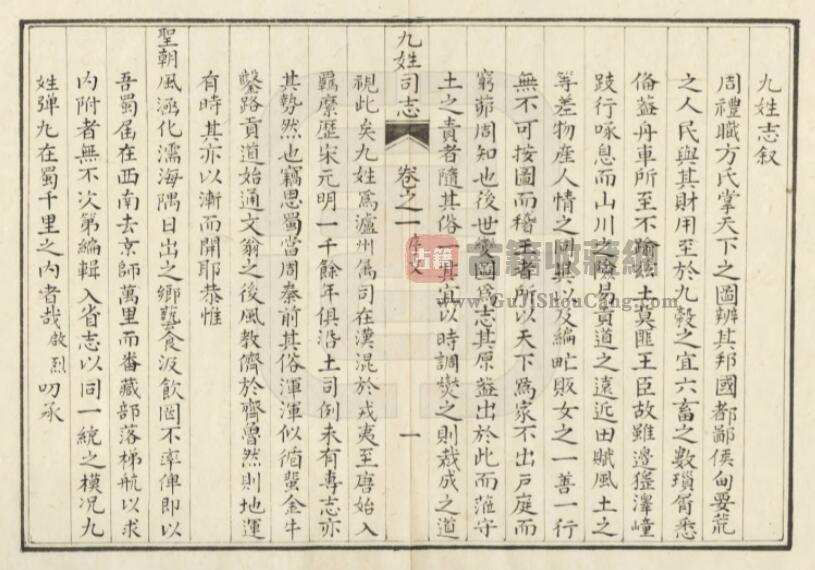 九姓志叙
周禮職方氏掌天下之圖辨其邦國都鄙侯甸要荒
之人民與其財用至於九穀之宜六畜之數瑣脊悉
備葢舟車所至不踰茲土莫匪王臣故雖邊徭澤㠉
跂行喙息而山川之險易貢道之遠近田賦風土之
等差物産人情之同異以及編甿販女之一善一行
無不可按圖而稽王者所以天下為家不出戸庭而
窮茆周知也後世變圖為志其原葢出於此而蒞守
土之責者隨其俗一其宜以時調爕之則裁成之道
九姓司志
卷之一
序文
一
視此矣九姓為瀘州僞司在漢混於戎夷至唐始入
羈縻歴宋元明一千餘年俱沿土司例未有專志亦
其勢然也竊思蜀當周秦前其俗渾渾似循蜚金牛
鑿路貢道始通文翁之後風教儕於齊魯然則地運
有時其亦以漸而開耶恭惟
聖朝風涵化濡海隅日出之鄉鑿食汲飲罔不率俾即以
吾蜀雋在西南去京師萬里而番藏部落梯航以求
内附者無不次第編輯入省志以同一統之模况九
姓弹九在蜀千里之内者哉啟烈叨承
古籍
古籍收藏網
www.GuJiShouCang.com